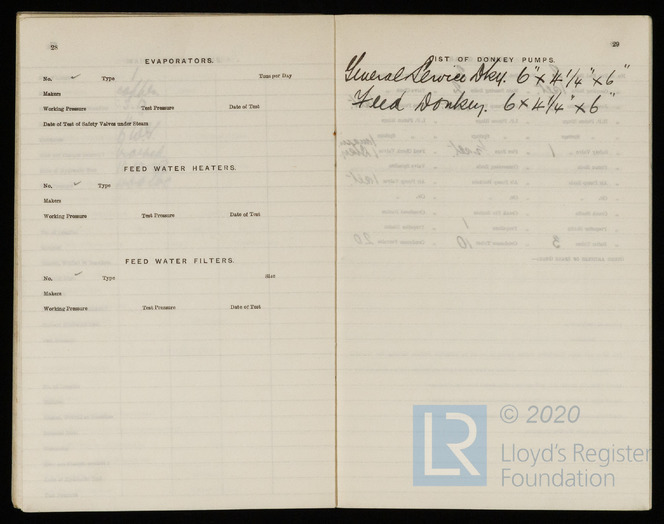 28
EVAPORATORS.
No. ✓ Type Tons per Day
Makers
Working Pressure Test Pressure Date of Test
Date of Test of Safety Valves under Steam
FEED WATER HEATERS.
No. ✓ Type
Makers
Working Pressure Test Pressure Date of Test
FEED WATER FILTERS.
No. ✓ Type Size
Makers
Working Pressure Test Pressure Date of Test
29
LIST OF DONKEY PUMPS.
General Service Dky. 6" x 4 1/4" x 6"
Feed Donkey. 6 x 4 1/4" x 6"
LR
© 2020
Lloyd's Register
Foundation